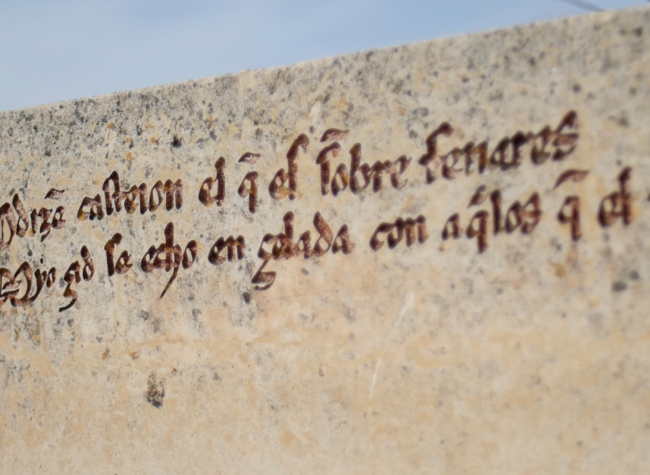 dizē casteion el q̄ es sobre fenares
Myo çid se echo en çelada con aq̄los q̄ el